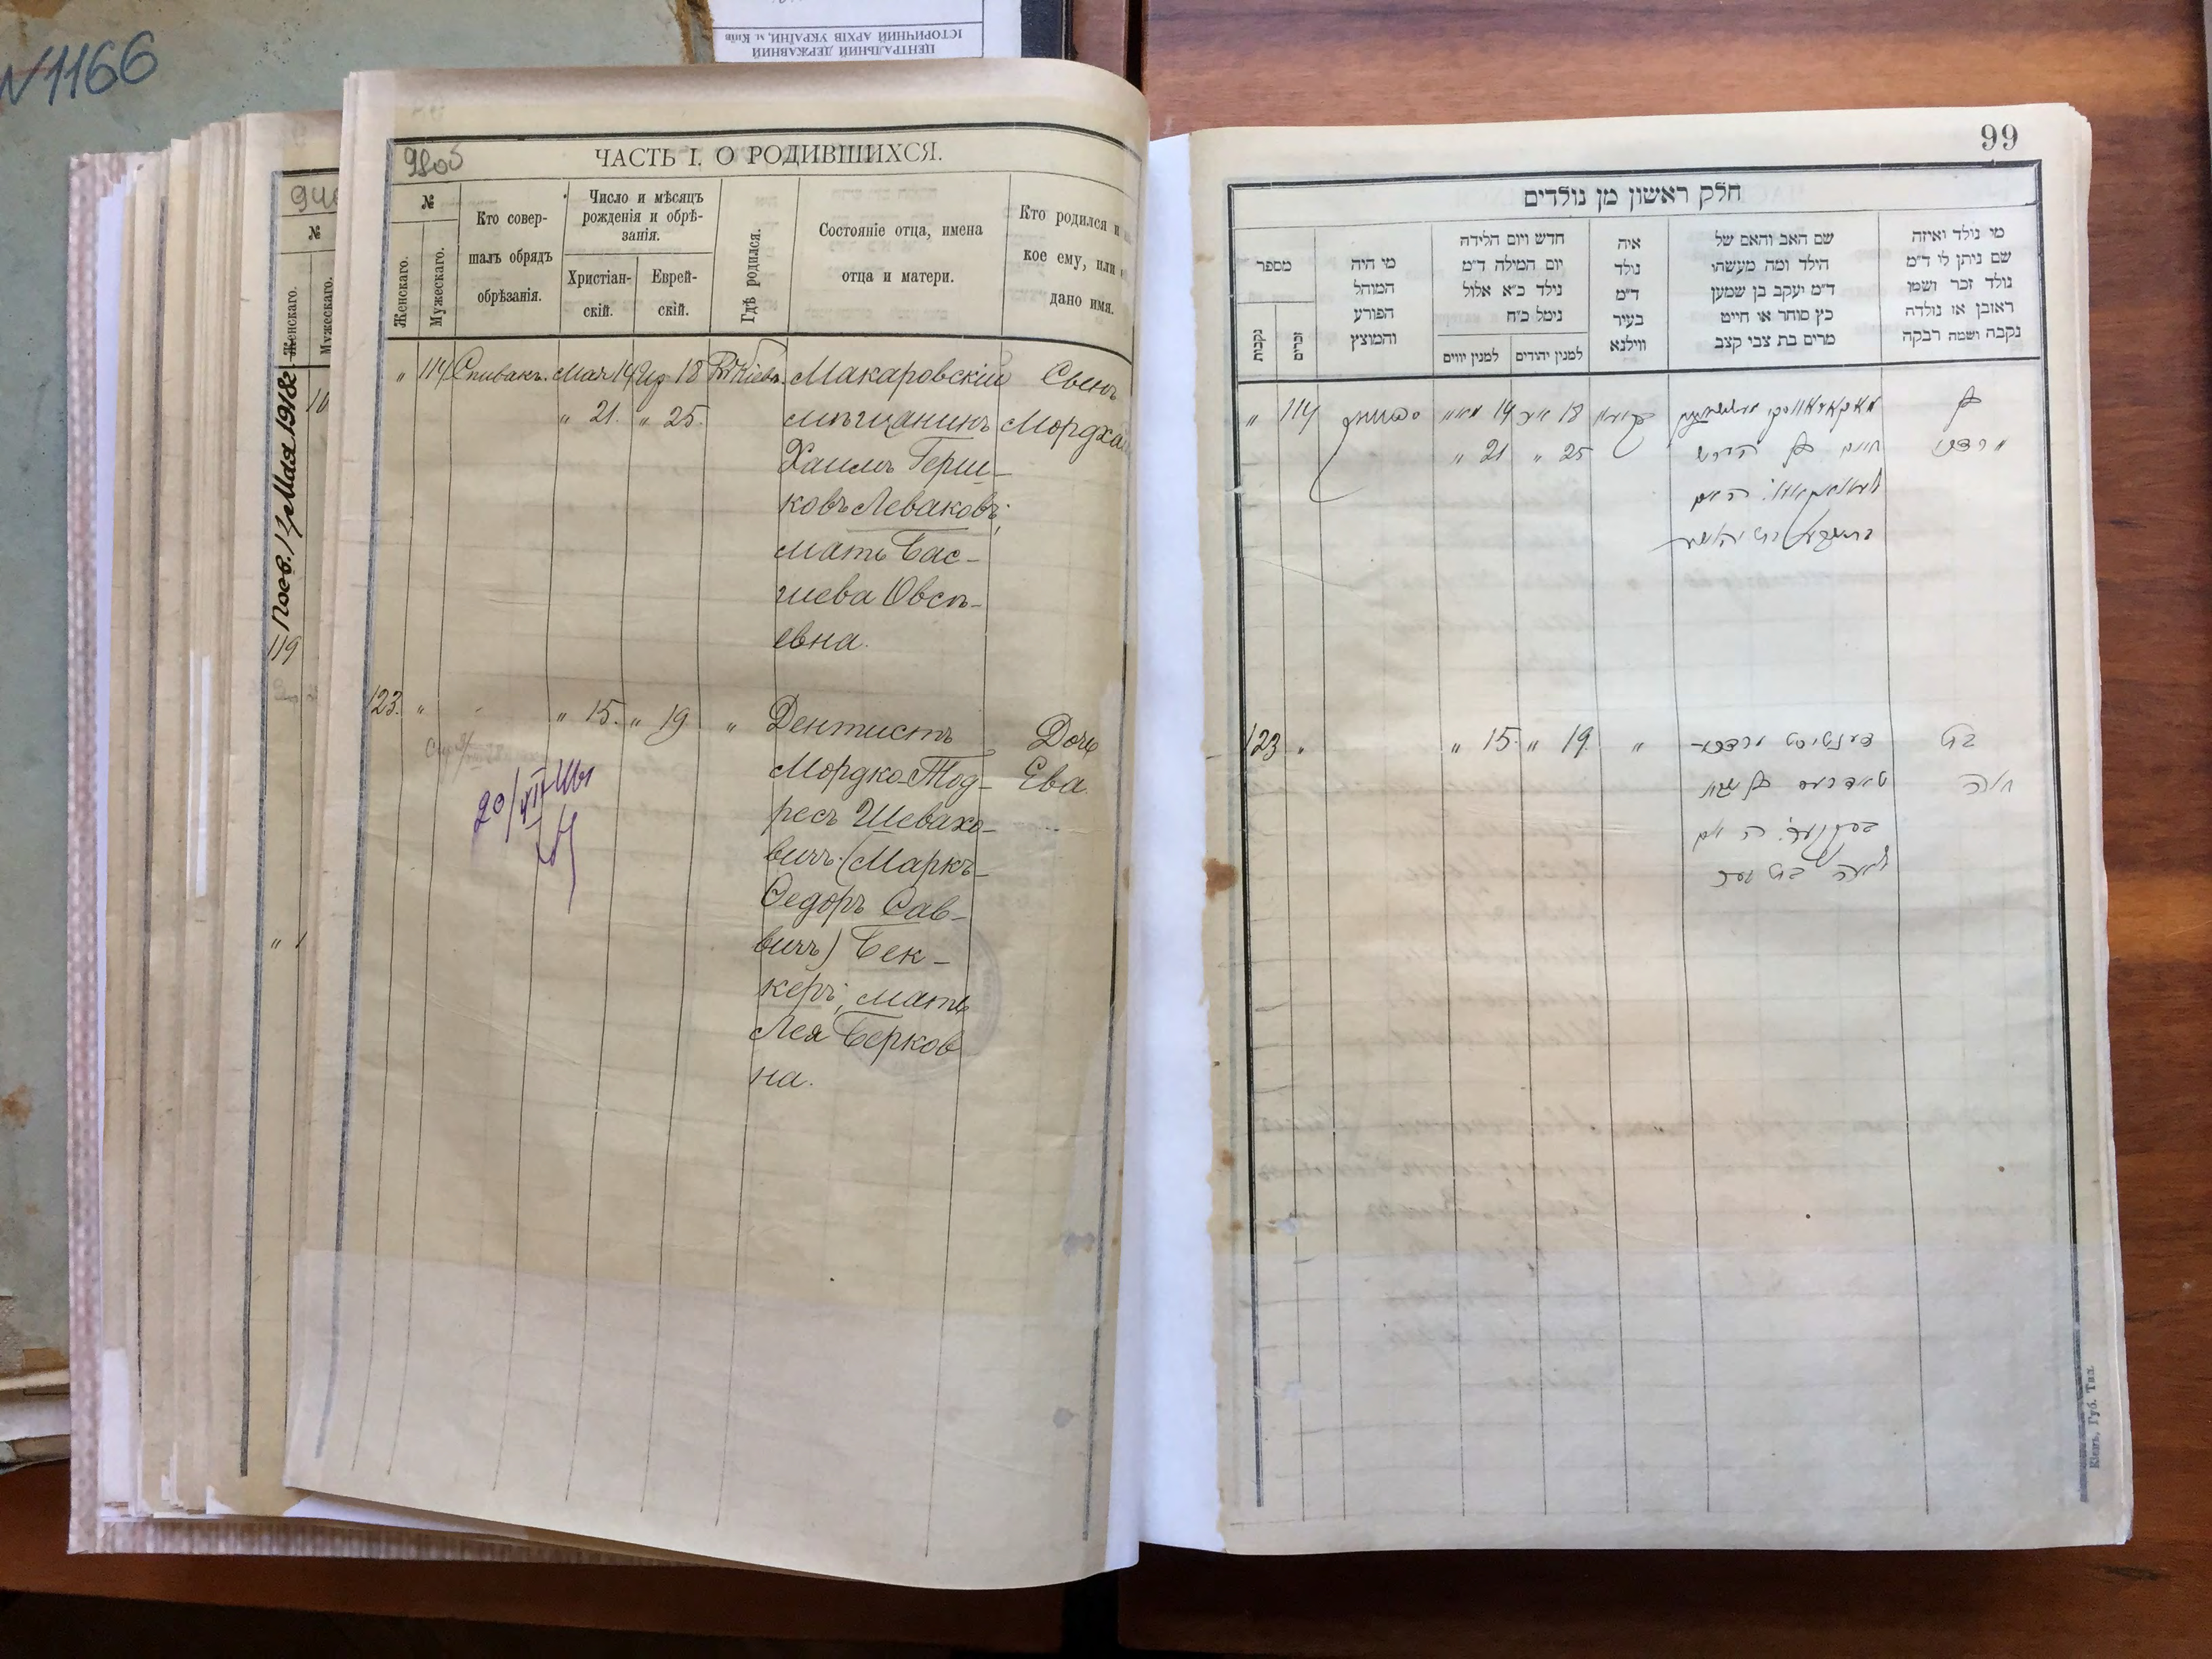 N1166
ЦЕНТРАЛЬНИЙ ДЕРЖАВНИЙ
ІСТОРИЧНИЙ АРХІВ УКРАЇНИ, м. Київ
№
Женскаго.
Мужескаго.
119
98об
ЧАСТЬ I. О РОДИВШИХСЯ.
№
Женскаго.
Мужескаго.
Кто совер-
шалъ обрядъ
обрѣзанія.
Число и мѣсяцъ
рожденія и обрѣ-
занія.
Христіан-
скій.
Еврей-
скій.
Гдѣ родился.
Состояніе отца, имена
отца и матери.
Кто родился и
кое ему, или
дано имя.
" 114 Спивакъ. Мая 14 Ияр 18 Въ Кіевѣ. Макаровскій Сынъ
" 21. " 25. мѣщанинъ Мордха
Хаимъ Герш-
ковъ Леваковъ;
мать Бас-
шева Овсѣ-
евна.
123. " " 15. " 19 " Дентистъ Дочь
Мордко-Тод- Ева.
ресъ Шевахо-
вичъ (Маркъ-
Ѳедоръ Сав-
вичъ) Бек-
керъ; мать
Лея Берков
на.
99
חלק ראשון מן נולדים
מספר
נקבות
זכרים
מי היה
המוהל
הפורע
והמוצץ
חדש ויום הלידה
יום המילה ד״מ
נילד כ״א אלול
נימל כ״ח
למנין יהודים
למנין יווים
איה
נולד
ד״מ
בעיר
ווילנא
שם האב והאם של
הילד ומה מעשהו
ד״מ יעקב בן שמען
כץ סוחר או חייט
מרים בת צבי קצב
מי נולד ואיזה
שם ניתן לי ד״מ
נולד זכר ושמו
ראובן או נולדה
נקבה ושמה רבקה
" 114 14 18 בן
" 21 " 25 חיים בן הירש
123 " " 15. " 19. " דענטיסט מרדכי בת
טאדרעס בן חוה
האם
לאה בת
Кіевъ, Губ. Тип.